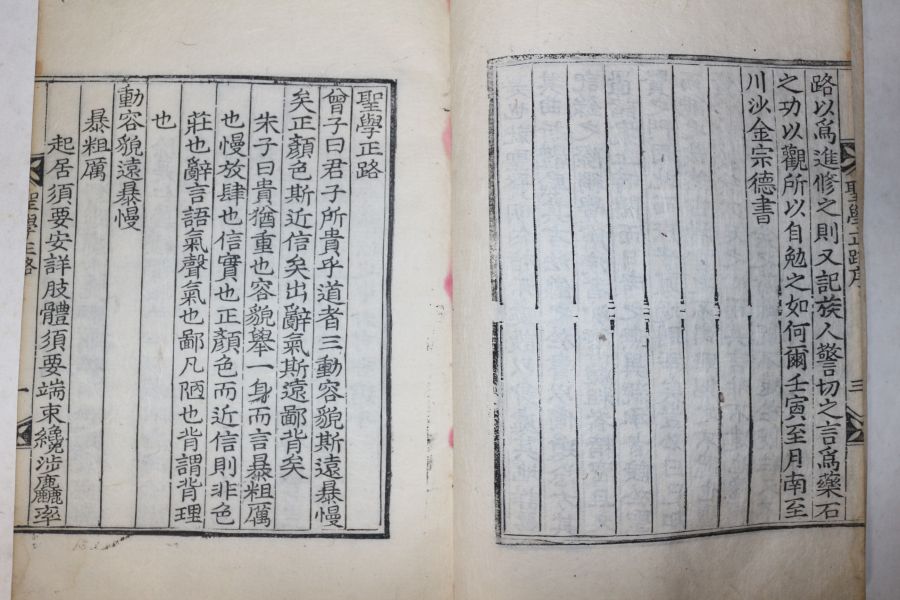 路以爲進修之則又記族人警切之言爲藥石
之功以觀所以自勉之如何爾壬寅至月南至
川沙金宗德書
聖學正路序
三
聖學正路
曾子曰君子所貴乎道者三動容貌斯遠暴慢
矣正顏色斯近信矣出辭氣斯遠鄙背矣
朱子曰貴猶重也容貌擧一身而言暴粗厲
也慢放肆也信實也正顏色而近信則非色
莊也辭言語氣聲氣也鄙凡陋也背謂背理
也
動容貌遠暴慢
暴粗厲
起居須要安詳肢體須要端束纔涉麤率
聖學正路
一